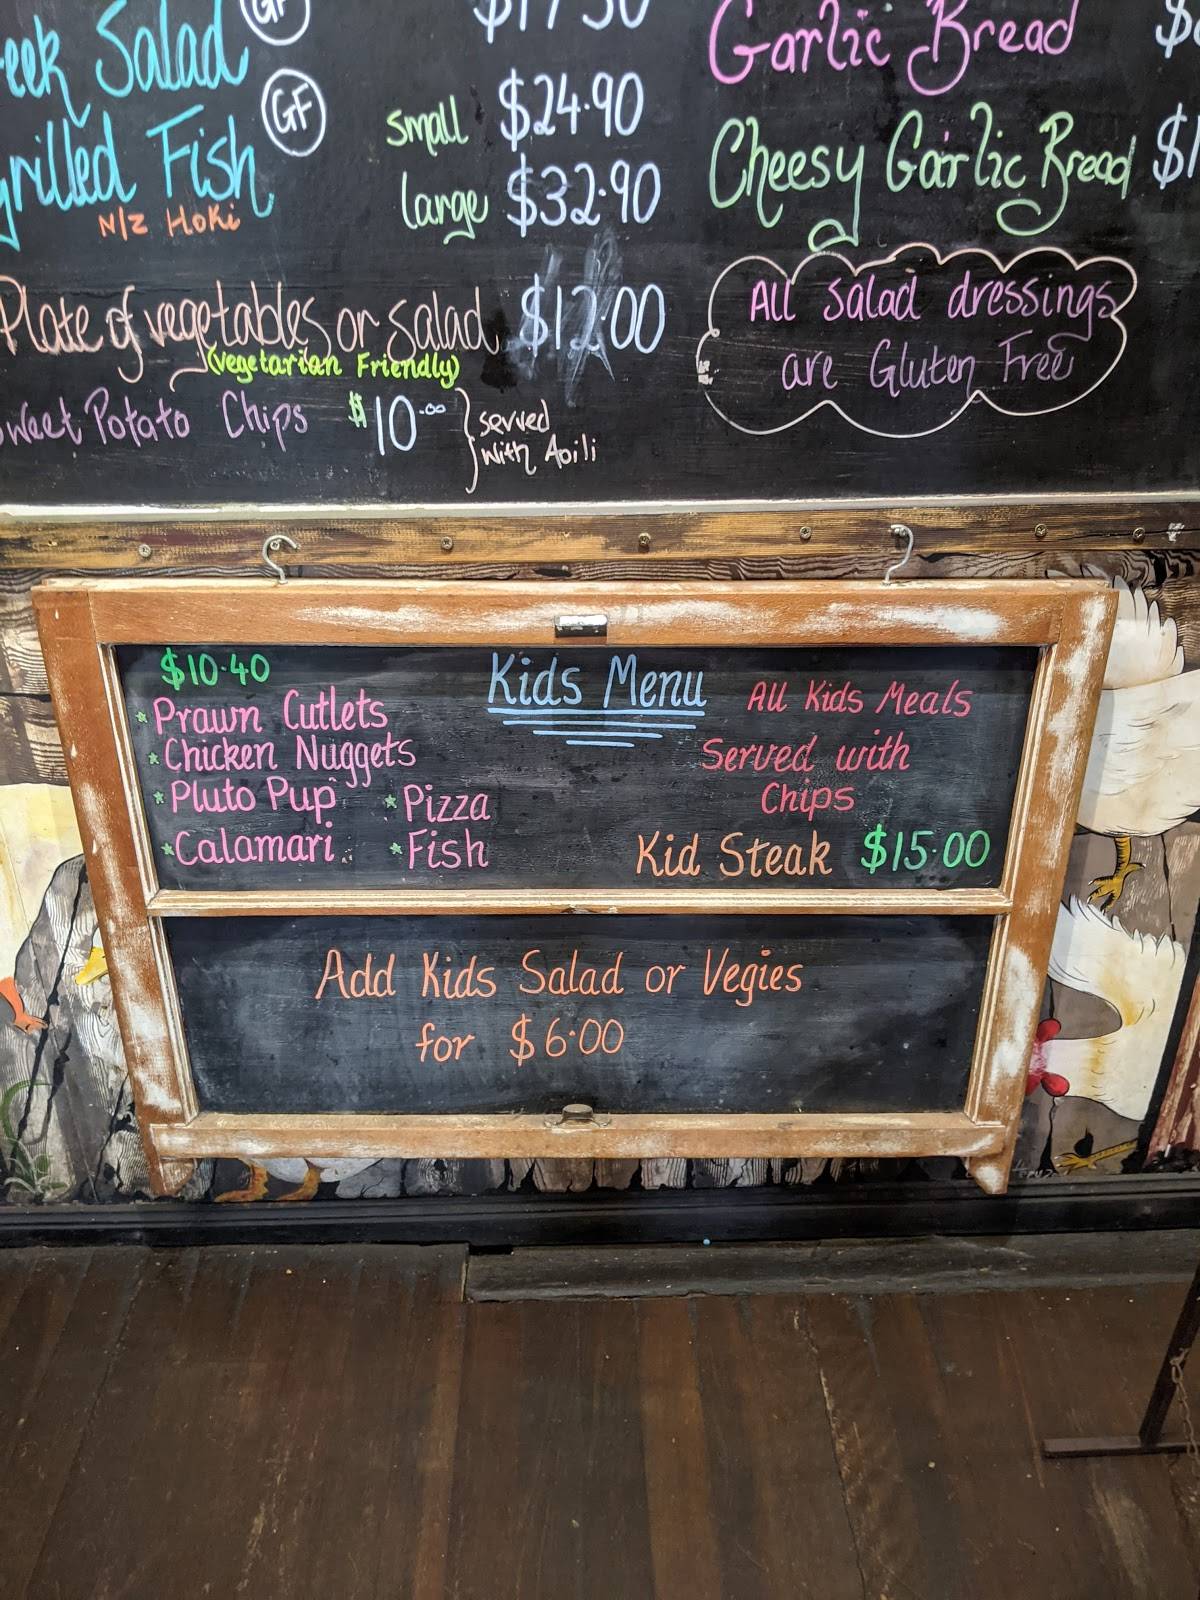 Salad GF $17.50
Grilled Fish GF small $24.90
N/Z Hoki large $32.90
Plate of vegetables or salad $12.00
(vegetarian Friendly)
Sweet Potato Chips $10.00 served
with Aoili
Garlic Bread
Cheesy Garlic Bread
All salad dressings
are Gluten Free
Kids Menu
$10.40
Prawn Cutlets
Chicken Nuggets
Pluto Pup Pizza
Calamari Fish
All Kids Meals
Served with
Chips
Kid Steak $15.00
Add Kids Salad or Vegies
for $6.00